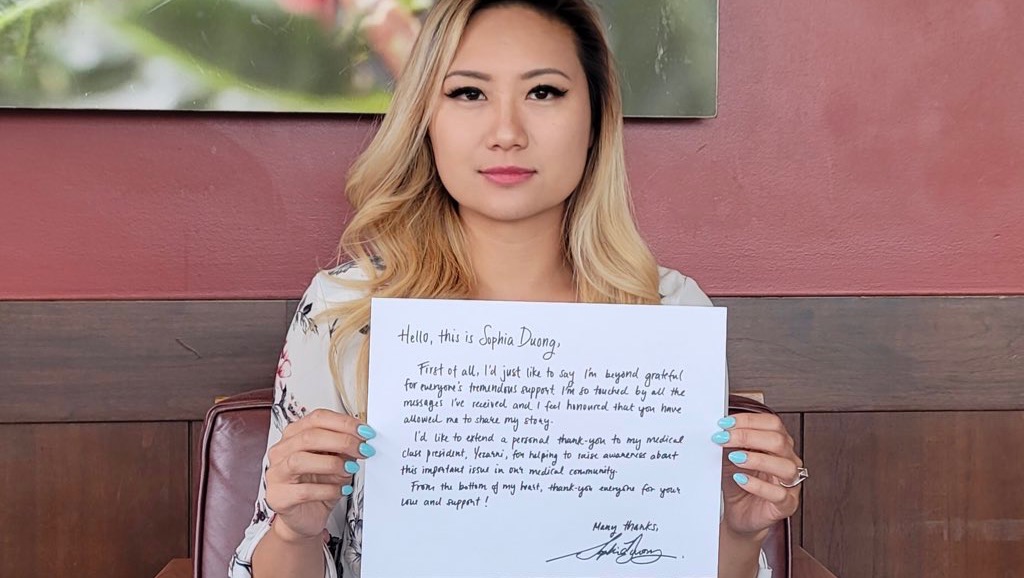 Hello, this is Sophia Duong,
First of all, I'd just like to say I'm beyond grateful
for everyone's tremendous support. I'm so touched by all the
messages I've received and I feel honoured that you have
allowed me to share my story.
I'd like to extend a personal thank-you to my medical
class president, Yezarni, for helping to raise awareness about
this important issue in our medical community.
From the bottom of my heart, thank-you everyone for your
love and support!
Many thanks,
Sophia Duong.